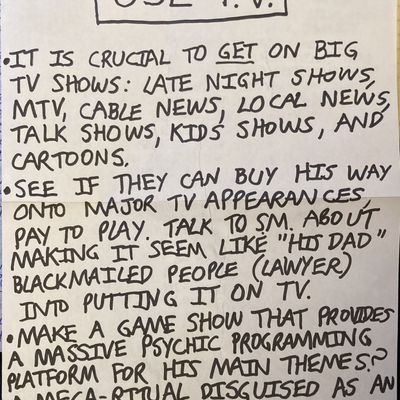 USE T.V.
•IT IS CRUCIAL TO GET ON BIG
TV SHOWS: LATE NIGHT SHOWS,
MTV, CABLE NEWS, LOCAL NEWS,
TALK SHOWS, KIDS SHOWS, AND
CARTOONS.
•SEE IF THEY CAN BUY HIS WAY
ONTO MAJOR TV APPEARANCES,
PAY TO PLAY. TALK TO S.M. ABOUT
MAKING IT SEEM LIKE "HIS DAD"
BLACKMAILED PEOPLE (LAWYER)
INTO PUTTING IT ON TV.
•MAKE A GAME SHOW THAT PROVIDES
A MASSIVE PSYCHIC PROGRAMMING
PLATFORM FOR HIS MAIN THEMES?
A MEGA-RITUAL DISGUISED AS AN